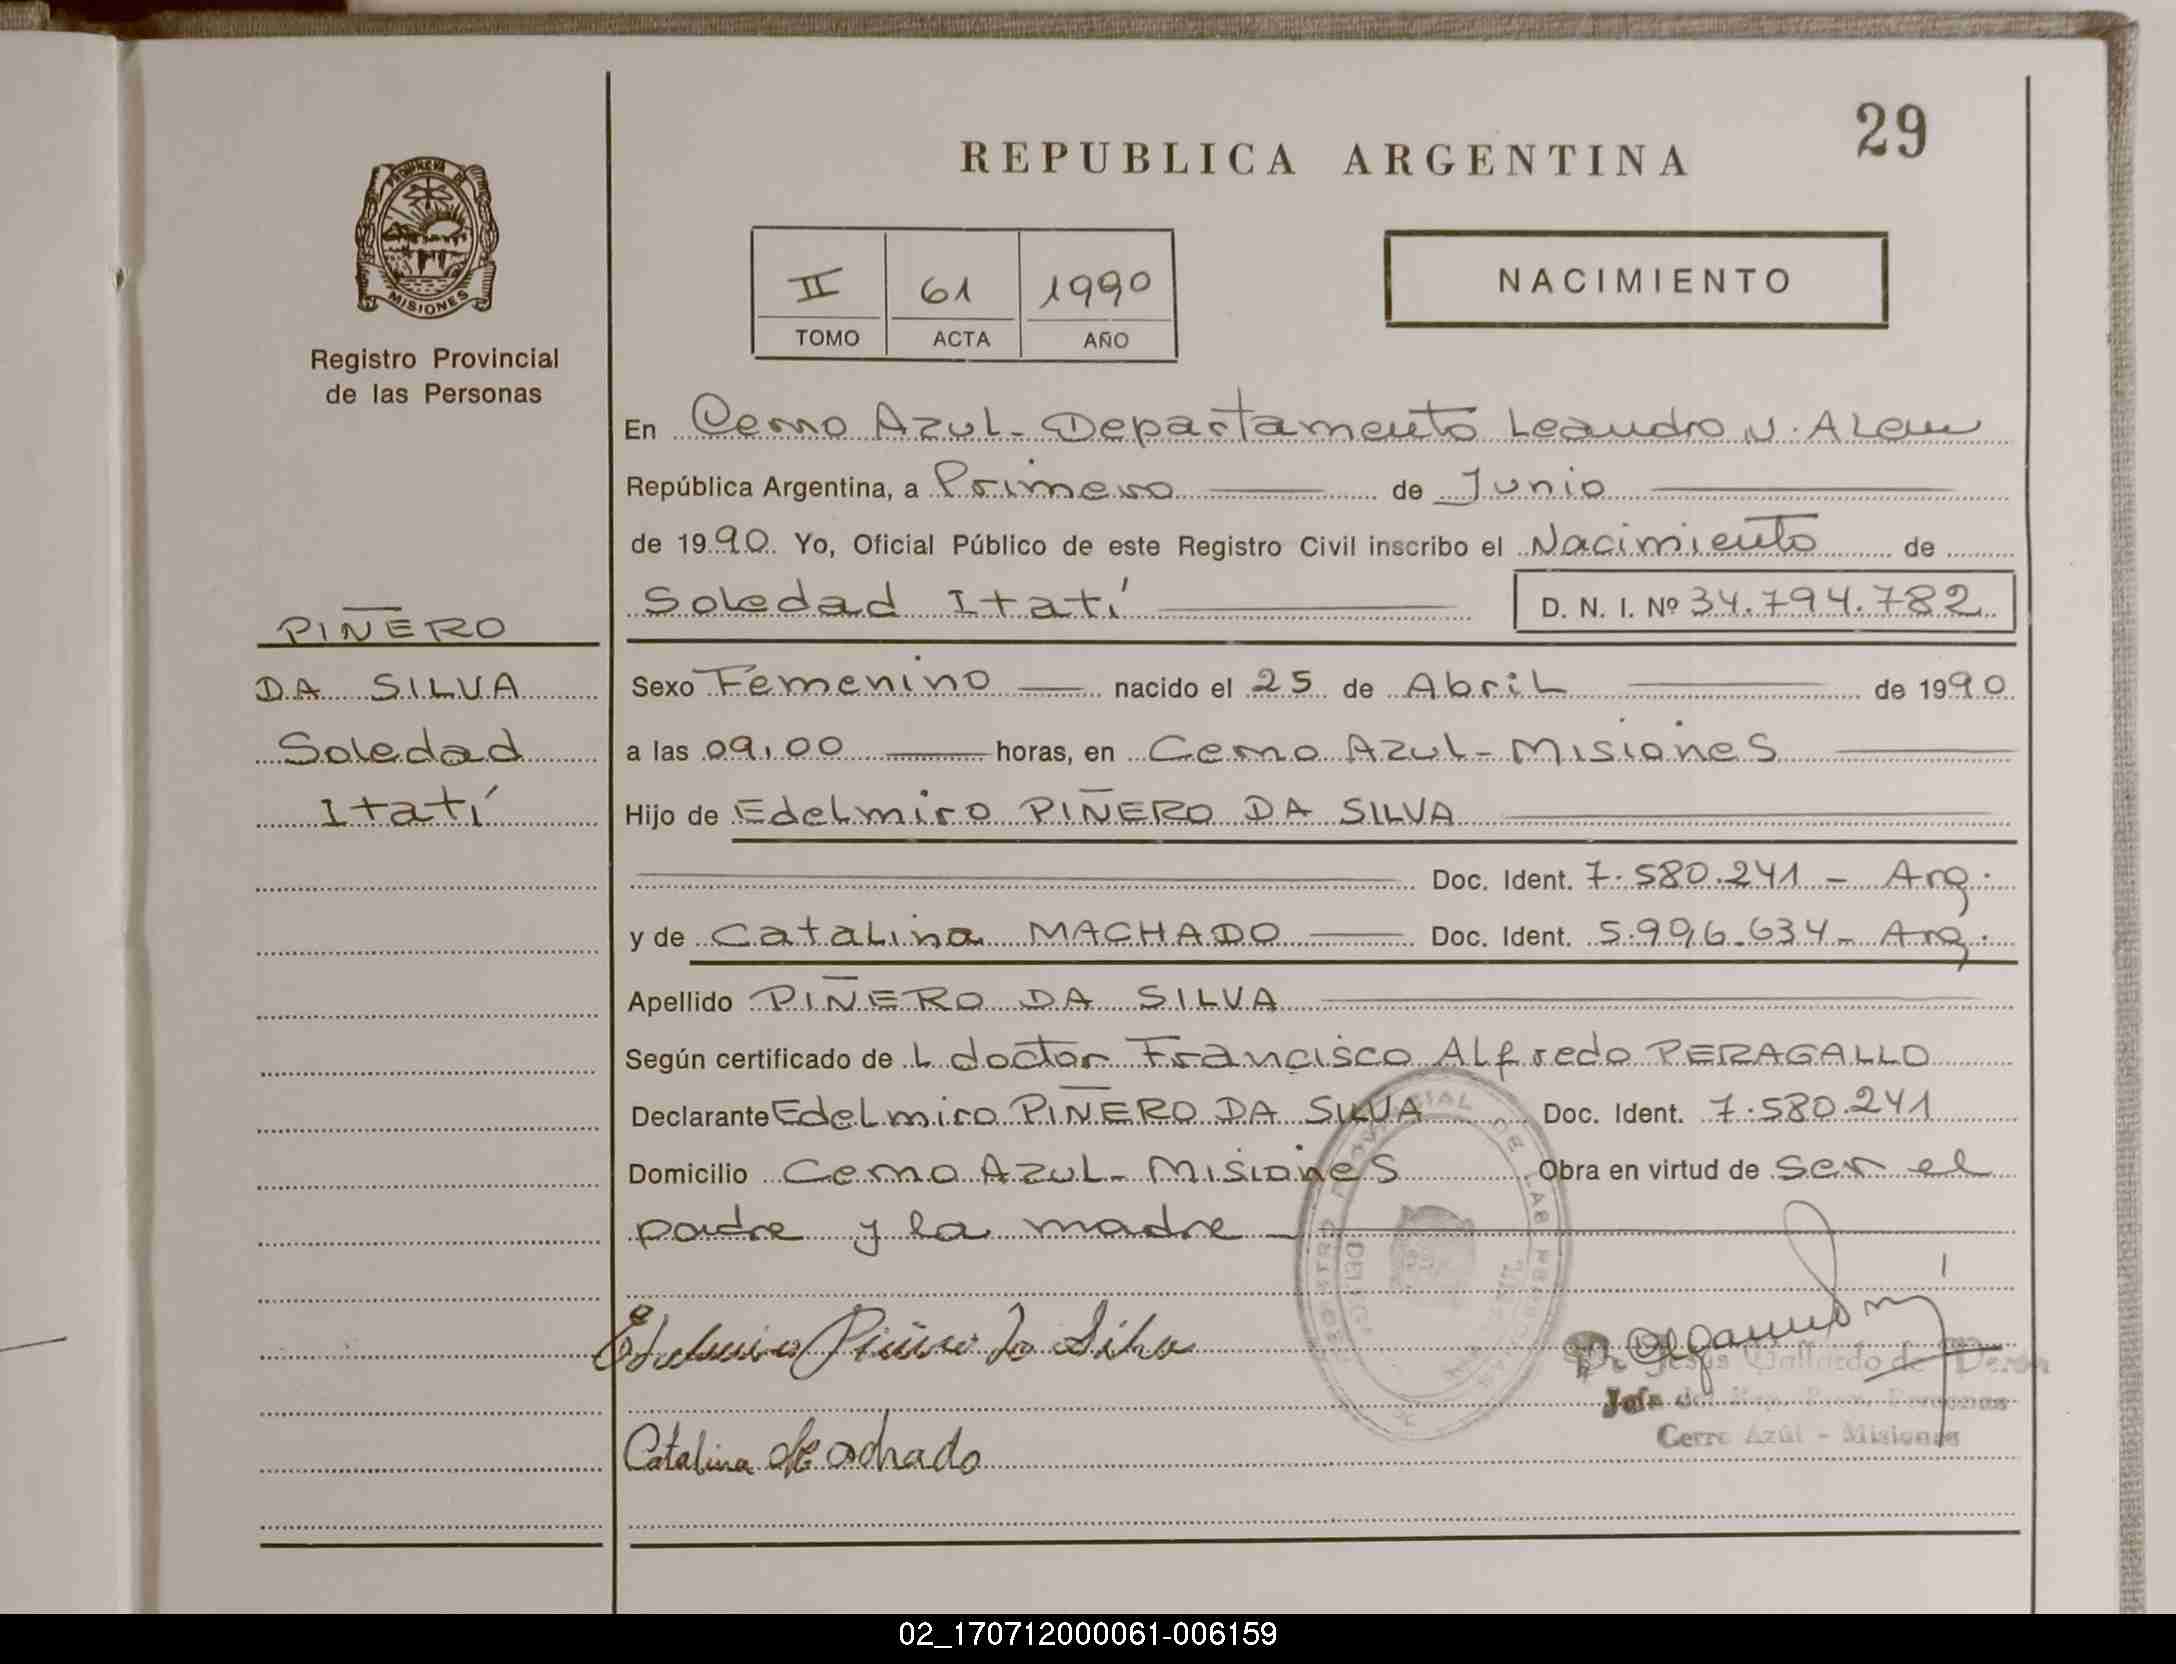 29
REPUBLICA ARGENTINA
PROVINCIA DE
MISIONES
Registro Provincial
de las Personas
NACIMIENTO
II 61 1990
TOMO ACTA AÑO
En Cerro Azul - Departamento Leandro N. Alem
República Argentina, a Primero de Junio
de 1990. Yo, Oficial Público de este Registro Civil inscribo el Nacimiento de
Soledad Itatí D. N. I. Nº 34.794.782
PIÑERO
DA SILVA
Soledad
Itatí
Sexo Femenino nacido el 25 de Abril de 1990
a las 09,00 horas, en Cerro Azul - Misiones
Hijo de Edelmiro PIÑERO DA SILVA
Doc. Ident. 7.580.241 - Arg.
y de Catalina MACHADO Doc. Ident. 5.996.634 - Arg.
Apellido PIÑERO DA SILVA
Según certificado de L doctor Francisco Alfredo PERAGALLO
Declarante Edelmiro PIÑERO DA SILVA Doc. Ident. 7.580.241
Domicilio Cerro Azul - Misiones Obra en virtud de ser el
padre y la madre
Edelmiro Piñero Da Silva
Catalina Machado
Jesús Gallardo de
Jefe del Reg. Prov. Personas
Cerro Azúl - Misiones
02_170712000061-006159